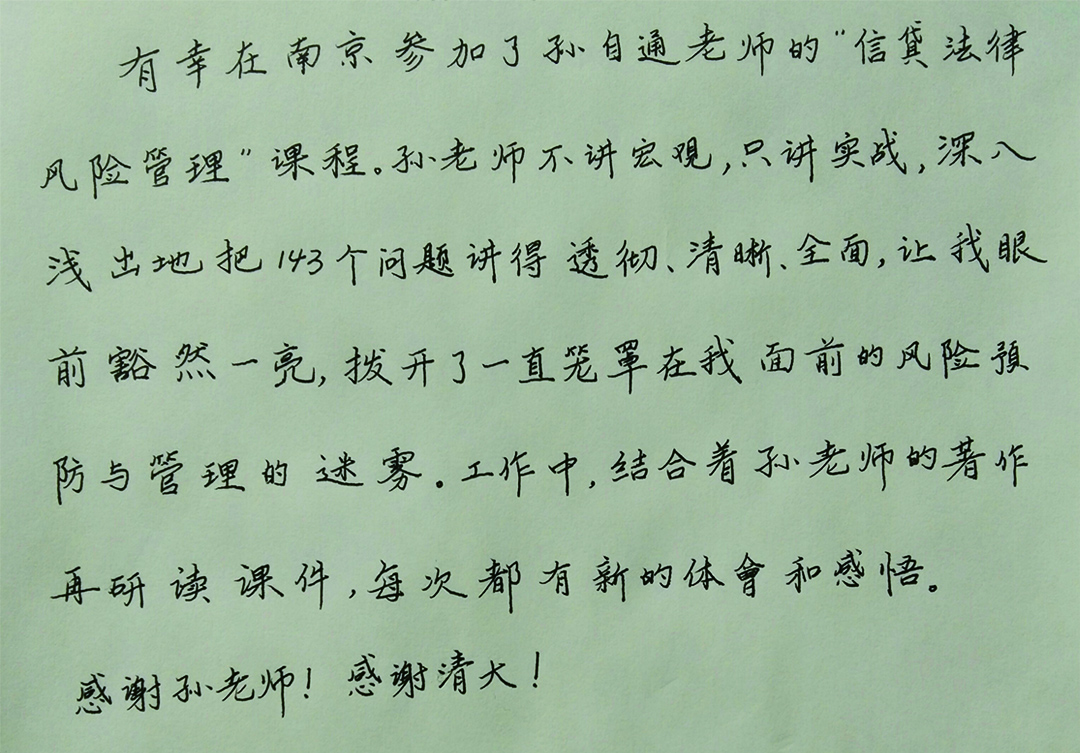 有幸在南京参加了孙自通老师的"信贷法律
风险管理"课程。孙老师不讲宏观,只讲实战,深入
浅出地把143个问题讲得透彻、清晰、全面,让我眼
前豁然一亮,拨开了一直笼罩在我面前的风险预
防与管理的迷雾。工作中,结合着孙老师的著作
再研读课件,每次都有新的体會和感悟。
感谢孙老师!感谢清大!